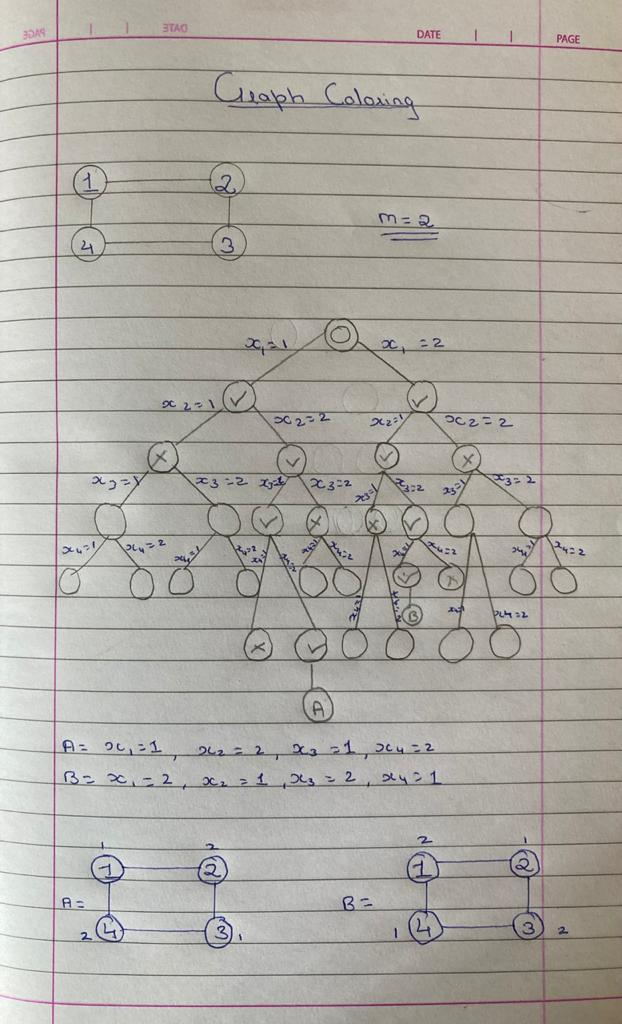 DATE | | PAGE
Graph Coloring
1 2
m = 2
4 3
x₁=1 x₁ = 2
x₂=1 x₂=2 x₂=1 x₂=2
x₃=1 x₃=2 x₃=1 x₃=2 x₃=1 x₃=2 x₃=1 x₃=2
x₄=1 x₄=2 x₄=1 x₄=2 x₄=1 x₄=2 x₄=1 x₄=2 x₄=1 x₄=2 x₄=1 x₄=2
x₄=1 x₄=2 B x₄=1 x₄=2
A
A= x₁=1, x₂=2, x₃=1, x₄=2
B= x₁=2, x₂=1, x₃=2, x₄=1
1 2 2 1
1 2 1 2
A= B=
2 4 3 1 1 4 3 2